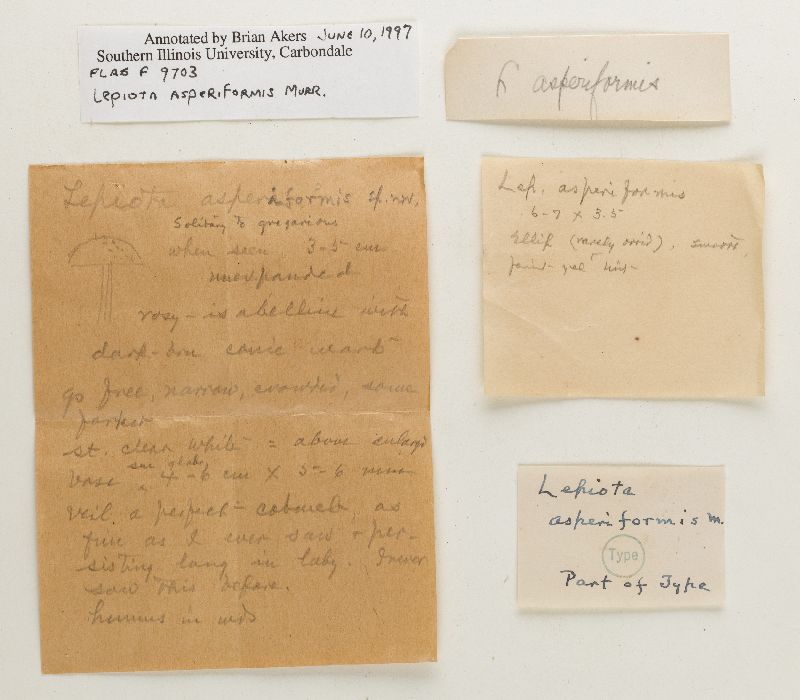 Annotated by Brian Akers JUNE 10, 1997
Southern Illinois University, Carbondale
FLAS F 9703
LEPIOTA ASPERIFORMIS MURR.
asperiformis
Lepiota asperiformis sp. nov.
Solitary to gregarious
when seen, 3-5 cm
unexpanded
rosy-isabelline with
dark-brn conic warts
gs free, narrow, crowded, some
forked
st. clear white = above enlarged
base 4-6 cm x 5-6 mm
veil a perfect cobweb, as
fine as I ever saw & per-
sisting long in baby. I never
saw this before.
humus in wds
Lep. asperiformis
6-7 x 3.5
Ellip (rarely ovoid), smooth,
faint-yel
Lepiota
asperiformis M.
Type
Part of Type